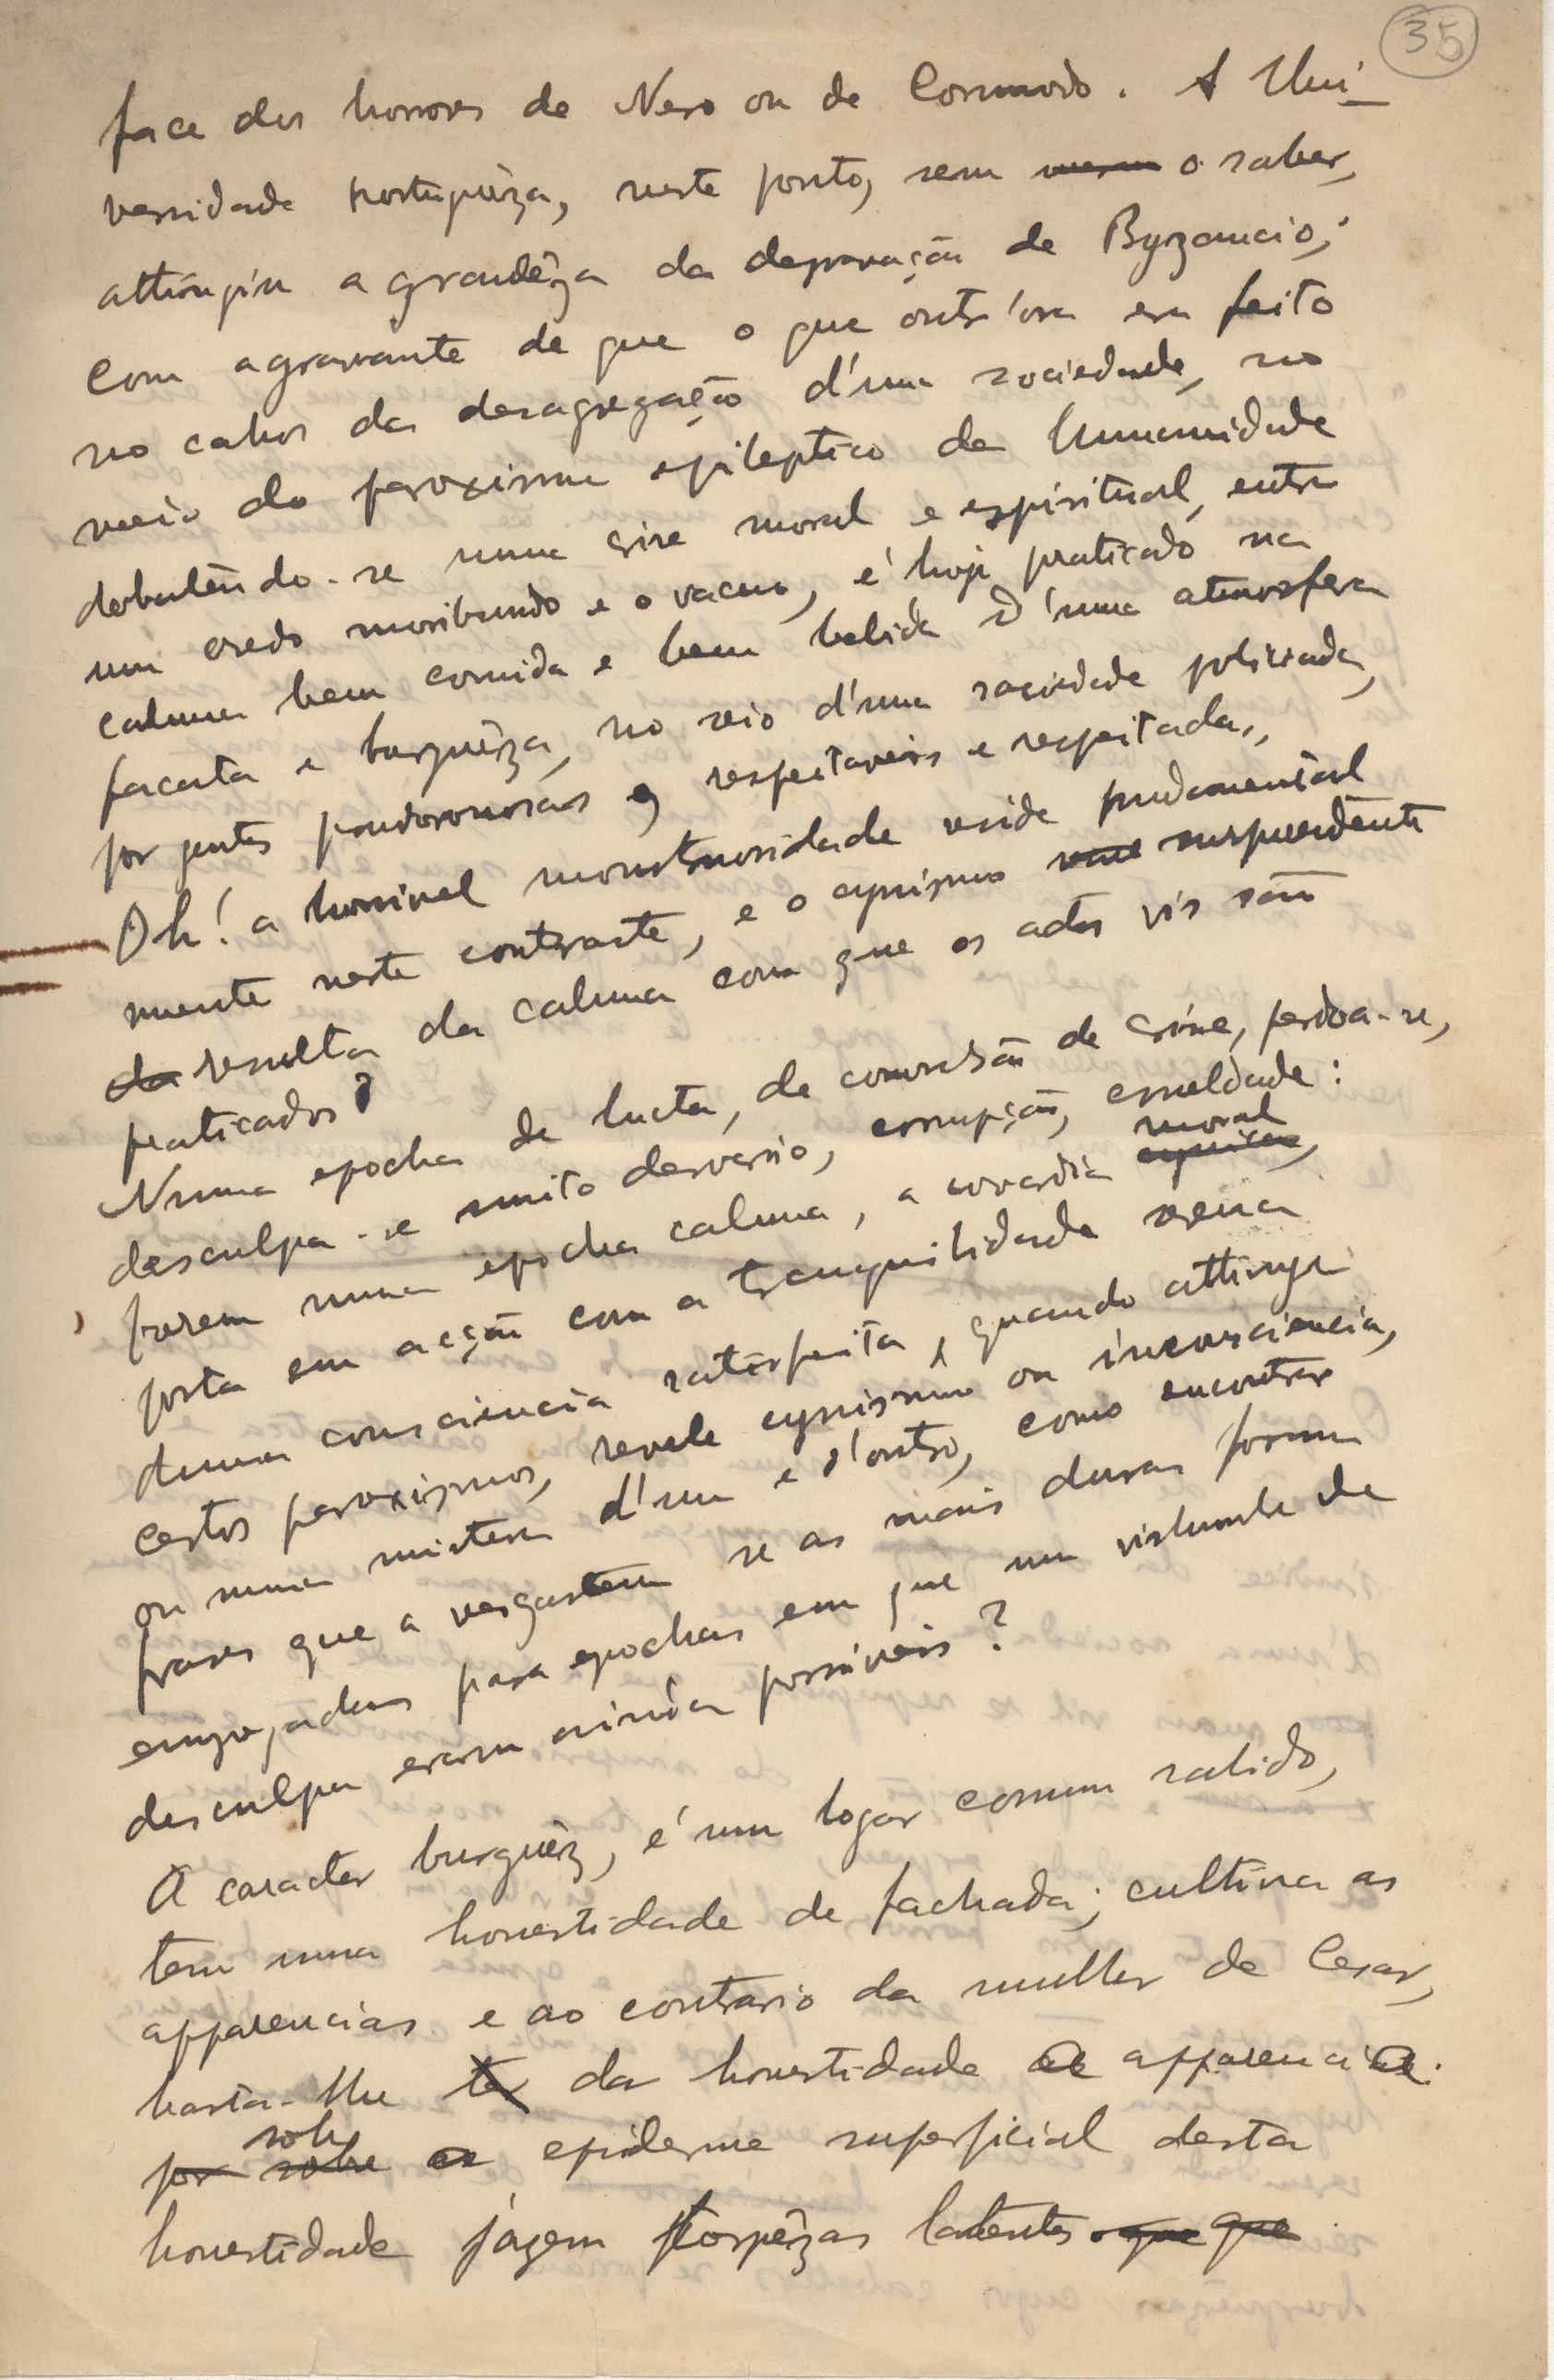 35
face dos horrores de Nero ou de Commodo. A Uni-
versidade portuguêza, neste ponto, sem o saber,
attingiu a grandêza da depravação de Byzancio;
com agravante de que o que outr'ora era feito
no cahos da desagregação d'uma sociedade, no
meio do paroxismo epileptico da humanidade
debatendo-se numa crise moral e espiritual, entre
um credo moribundo e o vacuo, é hoje praticado na
calma bem comida e bem bebida d'uma atmosfera
pacata e burguêza, no seio d'uma sociedade policiada,
por gentes pundonorosas e respeitaveis e respeitadas,
Oh! a horrivel monstruosidade reside fundamental
mente neste contraste, e o cynismo surpreendente
resulta da calma com que os actos vis são
praticados
Numa epocha de lucta, de convulsão de crise, perdoa-se,
desculpa-se muito desvario, corrupção, crueldade:
porem numa epocha calma, a covardia moral,
posta em acção com a tranquilidade serena
duma consciencia satisfeita, quando attinge
certos paroxismos, revela cynismo ou inconsciencia,
ou numa mistura d'um e d'outro, como encontrar
frases que a vergastem se as mais duras foram
empregadas para epochas em que um vislumbre de
desculpa eram ainda possiveis?
O caracter burguêz, é um logar comum sabido,
tem uma honestidade de fachada; cultiva as
apparencias e ao contrario da mulher de Cesar,
basta-lhe da honestidade a apparencia:
sob a epiderme superficial desta
honestidade jazem torpêzas latentes